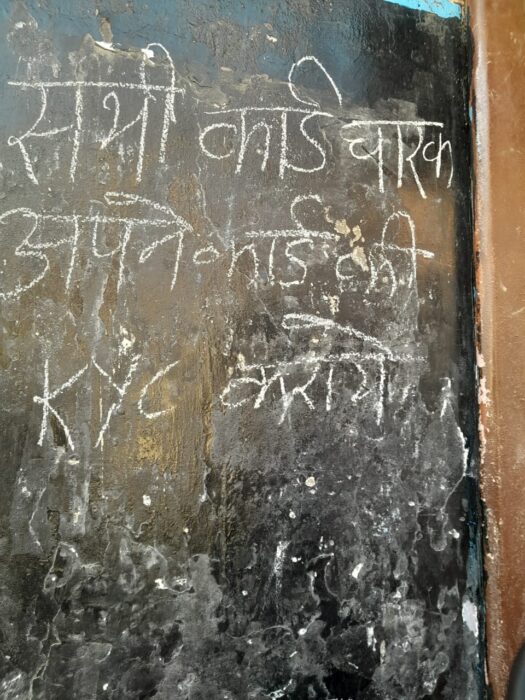 सभी कार्ड धारक
अपने कार्ड की
KYC कराये